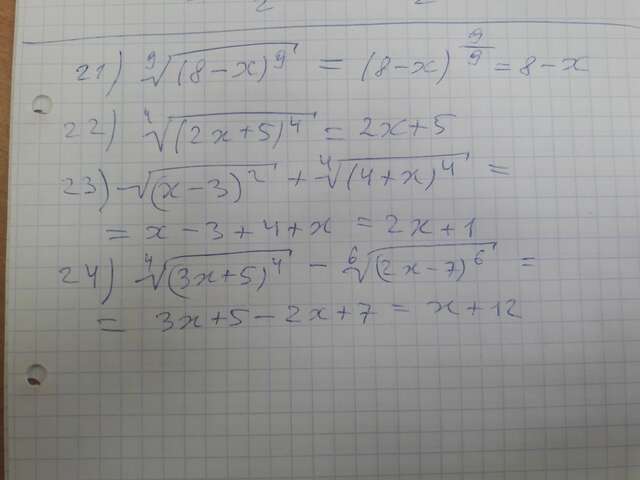 21) ⁹√(8-x)⁹ = (8-x)^(9/9) = 8-x
22) ⁴√(2x+5)⁴ = 2x+5
23) √(x-3)² + ⁴√(4+x)⁴ =
= x-3+4+x = 2x+1
24) ⁴√(3x+5)⁴ - ⁶√(2x-7)⁶ =
= 3x+5-2x+7 = x+12